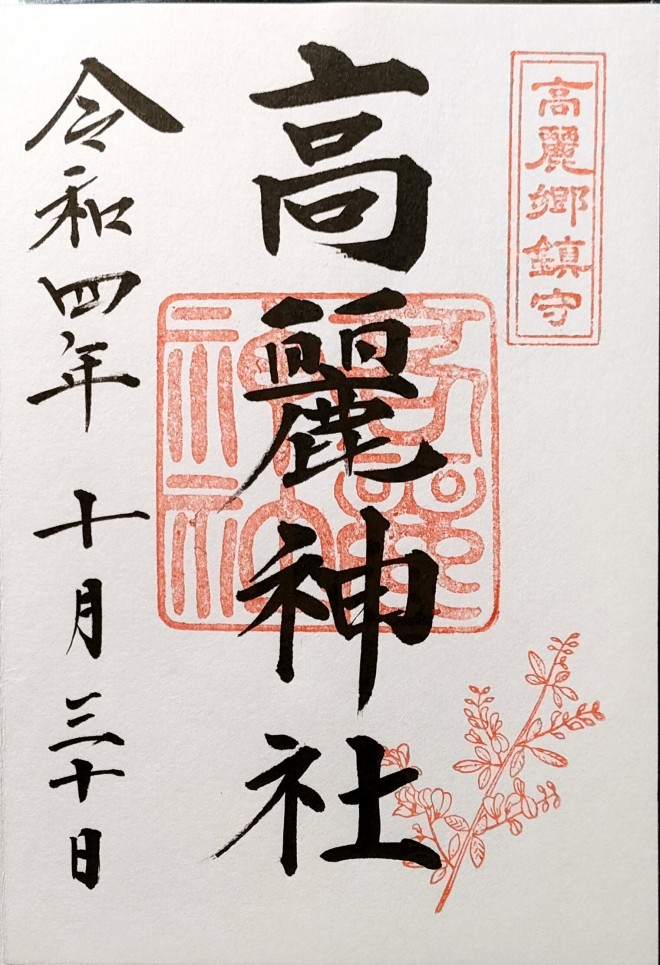 高麗郷鎮守
高麗神社
令和四年十月三十日